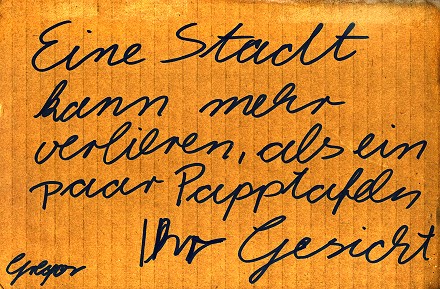 Eine Stadt
kann mehr
verlieren, als ein
paar Papptafeln
Ihr Gesicht
Gregor